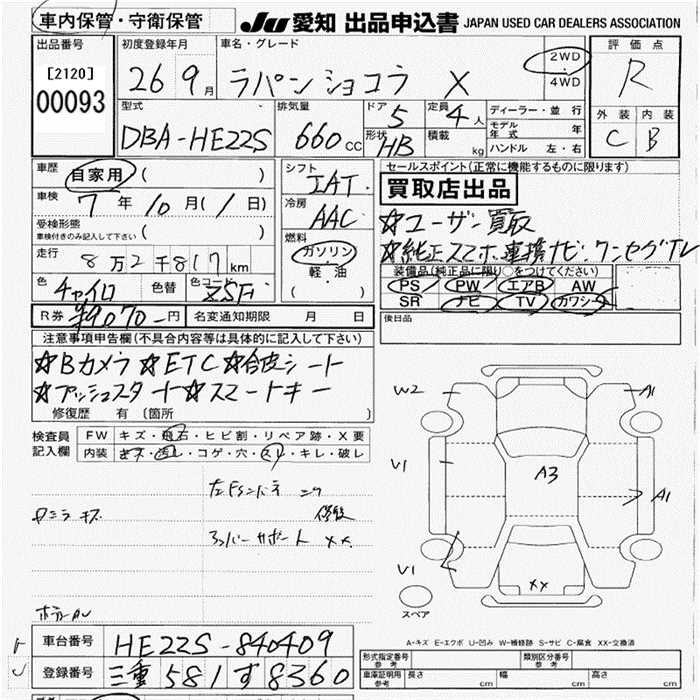 車内保管・守衛保管
JU 愛知 出品申込書 JAPAN USED CAR DEALERS ASSOCIATION
出品番号
[2120]
00093
初度登録年月
26 9月
車名・グレード
ラパン ショコラ X
2WD
・
4WD
評価点
R
外装 内装
C B
型式
DBA-HE22S
排気量
660 CC
ドア 5
形状 HB
定員 4 人
積載 kg
ディーラー・並行
モデル年式 年
ハンドル 左・右
車歴
自家用 ( )
車検
7 年 10 月 ( 1 日)
受検形態
車検付きのみ記入して下さい ( )
走行
8万2千817 km
色 チャイロ
色替
色コード ZSF
シフト
IAT
冷房
AAC
燃料
ガソリン
・
軽・油
( )
セールスポイント(正常に機能するものに限ります)
買取店出品
☆ユーザー買取
☆純正スマホ連携ナビ・ワンセグTV
装備品(純正品に限り○をつけてください)
PS PW エアB AW
SR ナビ TV カワシート
後日品
R券 ¥9070-円
名変通知期限 月 日
注意事項申告欄(不具合内容等は具体的に記入して下さい)
☆Bカメラ☆ETC☆合皮シート
☆プッシュスタート☆スマートキー
修復歴 有 (箇所 )
検査員記入欄
FW キズ・飛石・ヒビ割・リペア跡・X要
内装 キズ・汚レ・コゲ・穴・スレ・キレ・破レ
修復
コアサポート ××
W2
A1
V1
A3
A1
V1
××
スペア
A-キズ E-エクボ U-凹み W-補修跡 S-サビ C-腐食 XX-交換済
車台番号 HE22S-840409
登録番号 三重 581 す 8360
形式指定番号 参考
類別区分番号 参考
車庫証明用参考 長さ cm 幅 cm 高さ cm